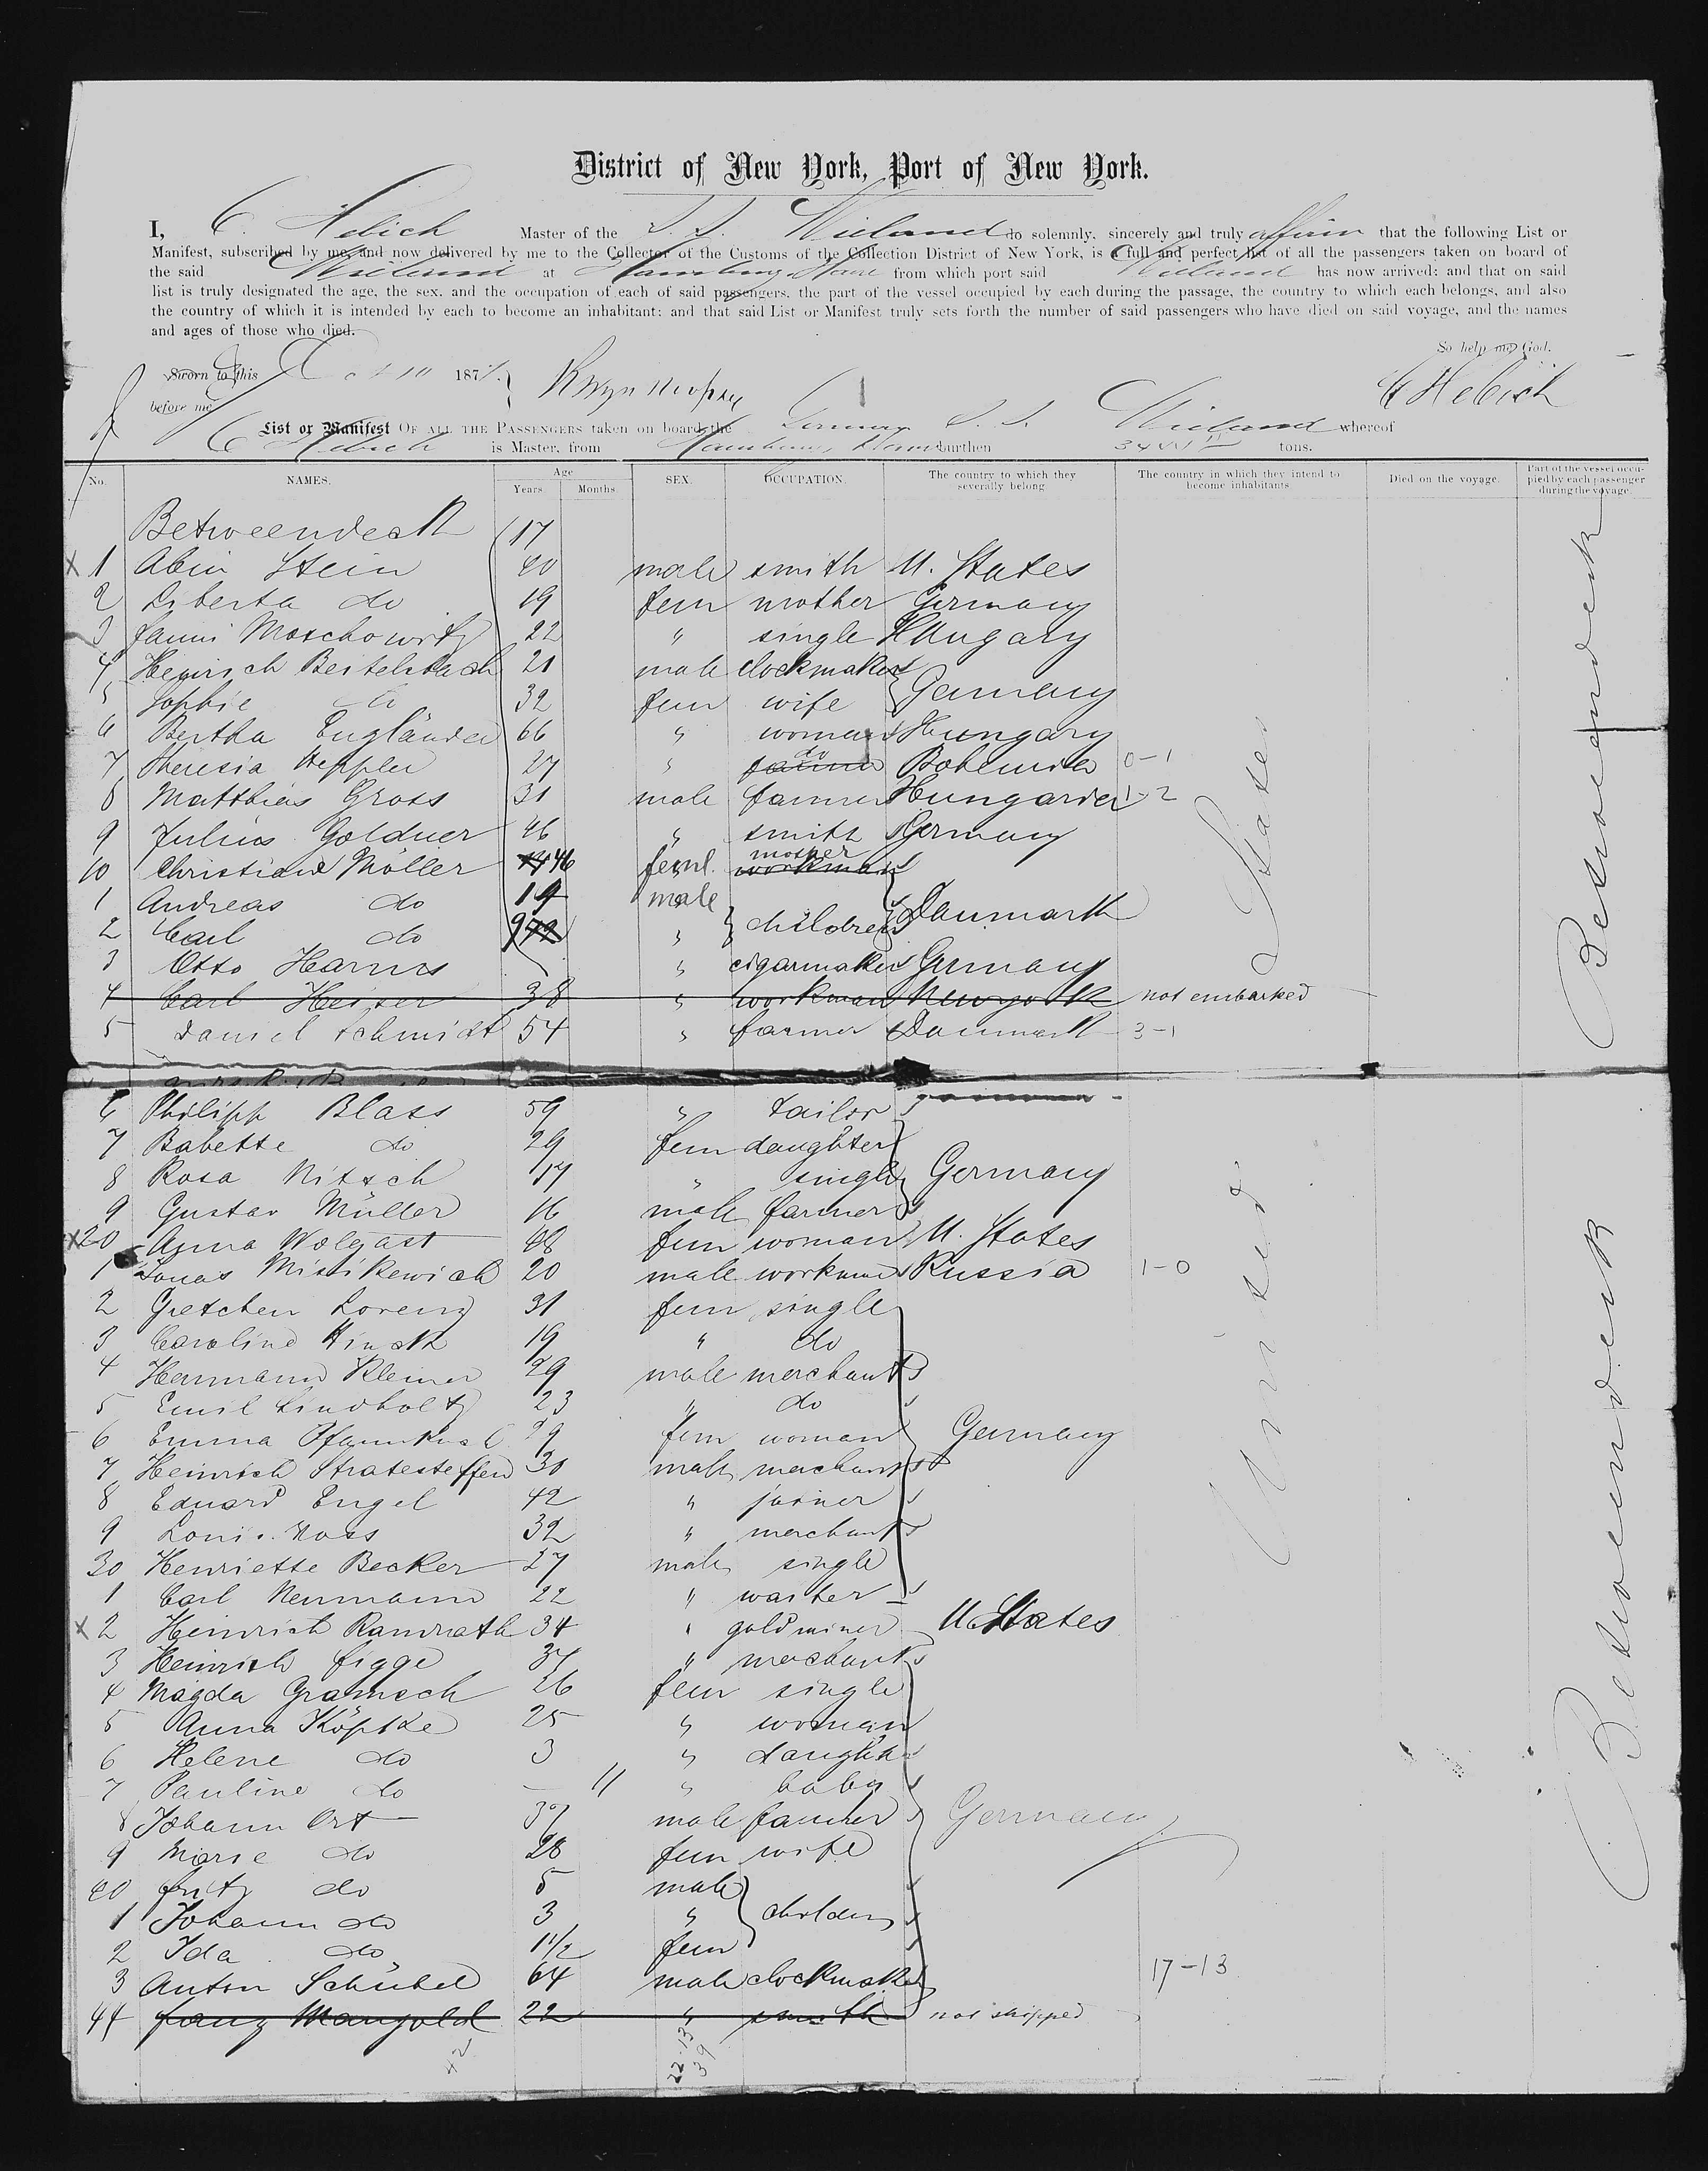 District of New York, Port of New York.
I, C. Hebich Master of the S. S. Wieland do solemnly, sincerely and truly affirm that the following List or
Manifest, subscribed by me, and now delivered by me to the Collector of the Customs of the Collection District of New York, is a full and perfect list of all the passengers taken on board of
the said Wieland at Hamburg, Havre from which port said Wieland has now arrived: and that on said
list is truly designated the age, the sex, and the occupation of each of said passengers, the part of the vessel occupied by each during the passage, the country to which each belongs, and also
the country of which it is intended by each to become an inhabitant: and that said List or Manifest truly sets forth the number of said passengers who have died on said voyage, and the names
and ages of those who died.
So help me God.
Sworn to this Oct 10 187
before me
C Hebich
List or Manifest OF ALL THE PASSENGERS taken on board the German S. S. Wieland whereof
C Hebich is Master, from Hamburg, burthen tons.
No. NAMES. Age Years. Months. SEX. OCCUPATION. The country to which they severally belong. The country in which they intend to become inhabitants. Died on the voyage. Part of the vessel occupied by each passenger during the voyage.
Betweendeck 17
x 1 Stein 40 male smith U. States
2 Liberta do 19 fem mother Germany
3 Fanni Moschowitz 22 " single Hungary
4 Heinrich Beitelsbach 21 male clockmaker
5 Sophie do 32 fem wife Germany
6 Bertha Engländer 66 " woman Hungary
7 Theresia Heppler 27 " do Bohemia 0-1
8 Matthias Gross 31 male farmer Hungaria 1-2
9 Julius Goldner 46 " smith Germany
10 Christiane Möller 46 feml. mother workman
1 Andreas do 14 male
2 Carl do 9 " children Danmark
3 Otto Harms " cigarmaker Germany
4 Carl Heiser 38 " workman Newyork not embarked
5 Daniel Schmidt 54 " farmer Danmark 3-1
6 Philipp Blass 59 " tailor
7 Babette do 29 fem daughter
8 Rosa Nitsch 17 " single Germany
9 Gustav Müller 16 male farmer
x20 Anna Wolgast 48 fem woman U. States
1 Jonas Missikewich 20 male workman Russia 1-0
2 Gretchen Lorenz 31 fem single
3 Caroline Hinck 19 " do
4 Hermann Kleiner 29 male merchant
5 Emil Lindholtz 23 " do
6 Emma fem woman Germany
7 Heinrich Stratesteffen 30 male merchant
8 Eduard Engel 42 " joiner
9 32 " merchant
30 Henriette Becker 27 male single
1 Carl Neumann 22 " waiter
x 2 Heinrich Ramrath 34 " goldminer U. States
3 Heinrich Figge 37 " merchant
4 Magda Gramsch 26 fem single
5 Anna Köpke 25 " woman
6 Helene do 3 " daughter
7 Pauline do — 11 " baby
8 Johann Ort 37 male farmer Germany
9 Marie do 28 fem wife
40 Fritz do 5 male
1 Johann do 3 " children
2 Ida do 1 1/2 fem
3 Anton Schübel 64 male clockmaker 17-13
44 Franz Mangold 22 " smith not shipped
42
22-13
39
United States
Betweendeck
Betweendeck